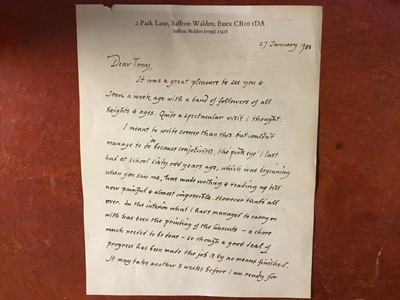 2 Park Lane, Saffron Walden, Essex CB10 1DA
Saffron Walden (0799) 27418
27 January 1988
Dear Tony,
It was a great pleasure to see you &
Joan a week ago with a band of followers of all
heights & ages. Quite a spectacular visit I thought.
I meant to write sooner than this but couldn't
manage to so because conjctivitis, the pink eye I last
had at school sixty odd years ago, which was beginning
when you saw me, has made writing & reading up till
now painful & almost impossible. However thats all
over. In the interim what I have managed to carry on
with has been the printing of the linocuts – a chore
much needed to be done – so though a good deal of
progress has been made the job is by no means finished.
It may take another 3 weeks before I am ready for